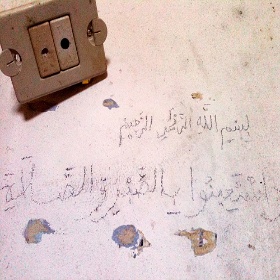 بسم الله الرحمن الرحيم
واستعينوا بالصبر والصلاة